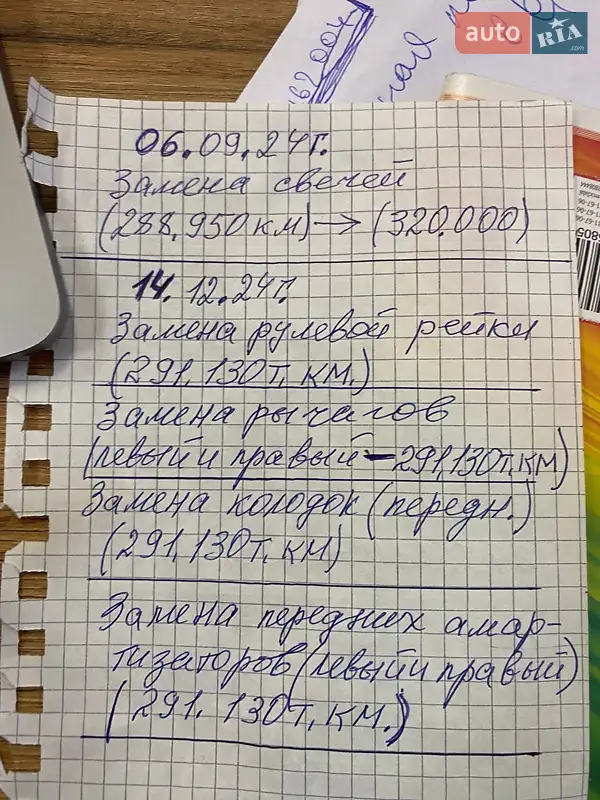 auto RIA
.com
06.09.24г.
Замена свечей
(288,950 км) → (320.000)
14. 12.24г.
Замена рулевой рейки
(291.130т. км.)
Замена рычагов
(левый и правый - 291,130т, км)
Замена колодок (передн.)
(291,130т, км)
Замена передних амар-
тизаторов (левый и правый)
(291. 130т, км.)